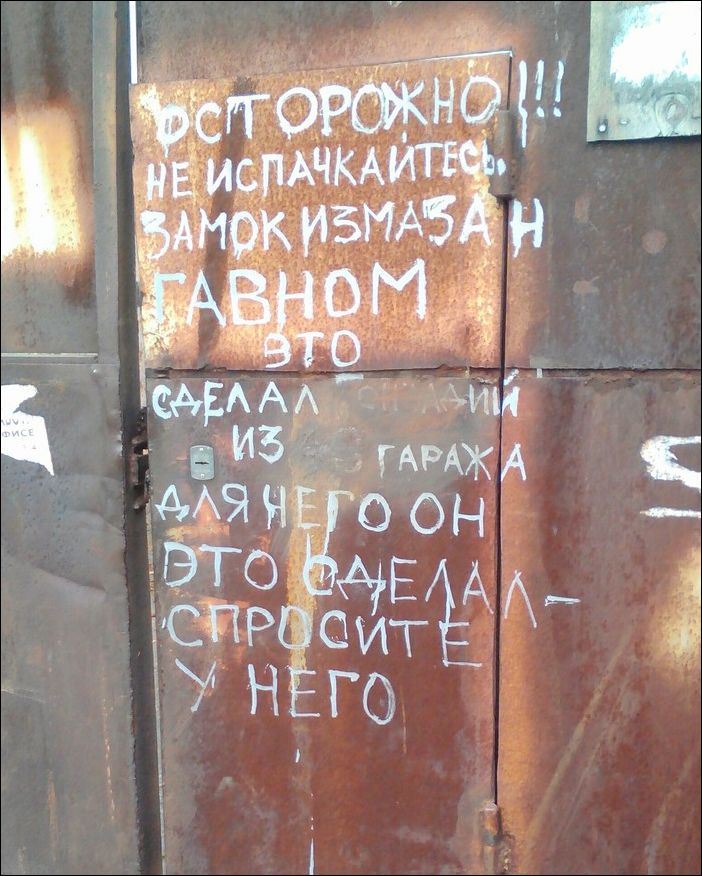 ОСТОРОЖНО!!!
НЕ ИСПАЧКАЙТЕСЬ.
ЗАМОК ИЗМАЗАН
ГАВНОМ
ЭТО
СДЕЛАЛ
ИЗ ГАРАЖА
ДЛЯ ЧЕГО ОН
ЭТО СДЕЛАЛ-
СПРОСИТЕ
У НЕГО